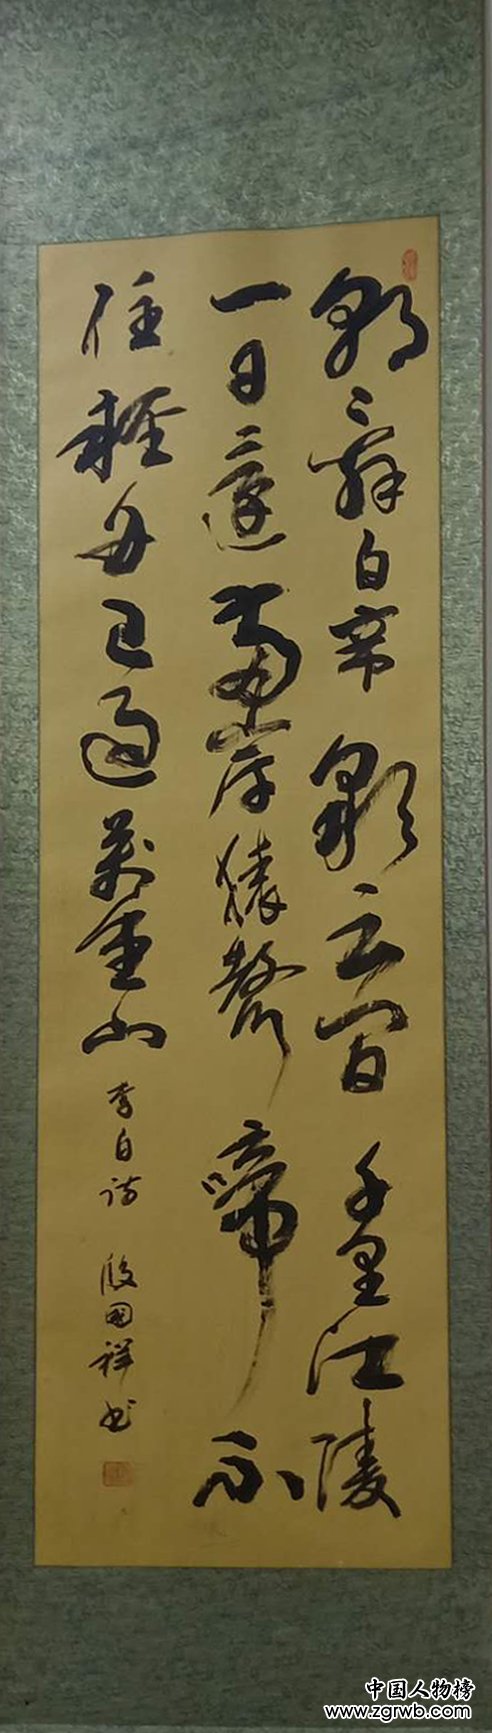 朝辭白帝彩云間千里江陵
一日還兩岸猿聲啼不
住輕舟已過萬重山 李白詩 殷国祥书
中国人物榜
www.zgrwb.com